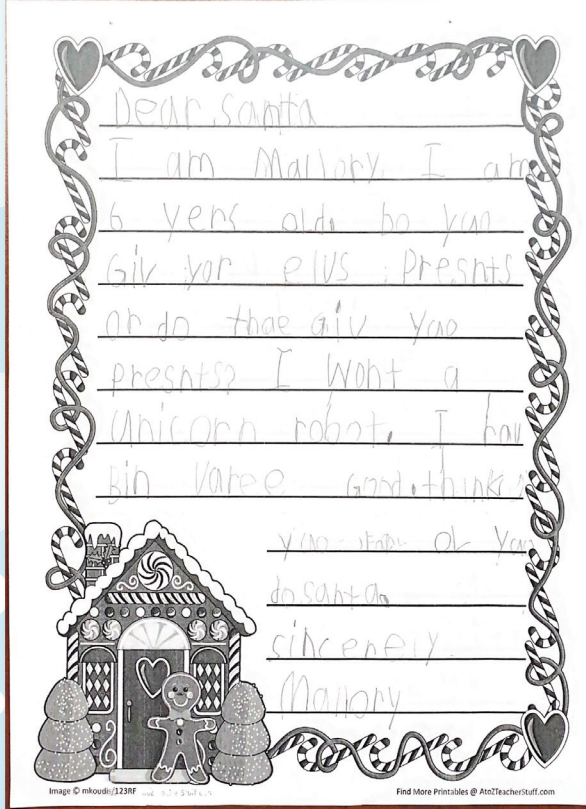 Dear Santa
I am Mallory. I am
6 yers old. Do yao
Giv yor elvs presnts
or do thae giv yao
presnts? I wont a
Unicorn robot. I hav
Bin varee Good. think
yao ol yao
do santa.
sincerely
Mallory
Image © mkoudis/123RF
Find More Printables @ AtoZTeacherStuff.com